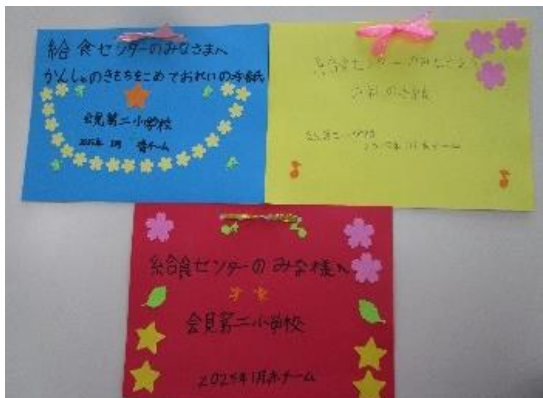 給食センターのみなさまへ
かんしゃのきもちをこめておれいの手紙
会見第二小学校
2025年 1月 青チーム
給食センターのみなさまへ
お礼の手紙
会見第二小学校
2025年1月黄チーム
給食センターのみな様へ
会見第二小学校
2025年1月赤チーム